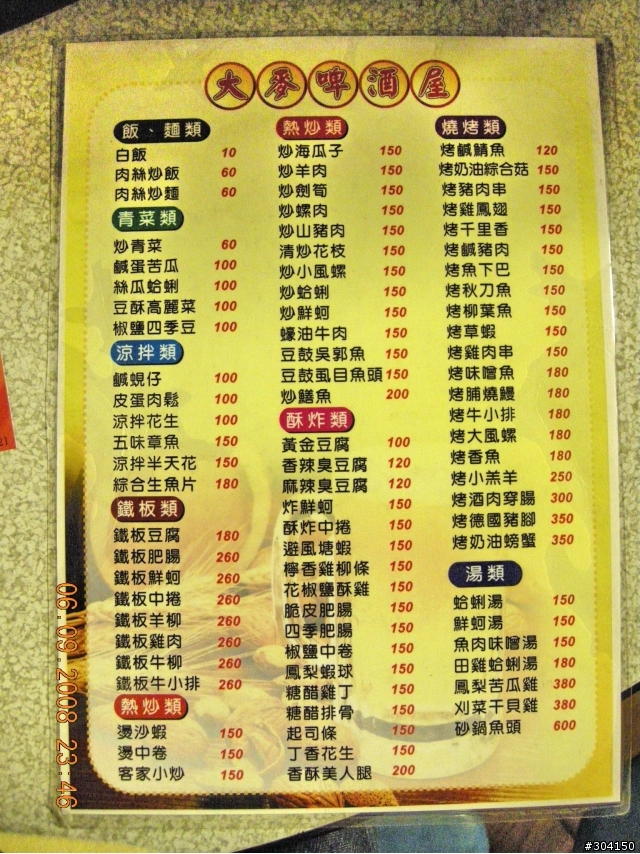 大麥啤酒屋
飯、麵類
白飯 10
肉絲炒飯 60
肉絲炒麵 60
青菜類
炒青菜 60
鹹蛋苦瓜 100
絲瓜蛤蜊 100
豆酥高麗菜 100
椒鹽四季豆 100
涼拌類
鹹蜆仔 100
皮蛋肉鬆 100
涼拌花生 100
五味章魚 150
涼拌半天花 150
綜合生魚片 180
鐵板類
鐵板豆腐 180
鐵板肥腸 260
鐵板鮮蚵 260
鐵板中捲 260
鐵板羊柳 260
鐵板雞肉 260
鐵板牛柳 260
鐵板牛小排 260
熱炒類
燙沙蝦 150
燙中卷 150
客家小炒 150
熱炒類
炒海瓜子 150
炒羊肉 150
炒劍筍 150
炒螺肉 150
炒山豬肉 150
清炒花枝 150
炒小風螺 150
炒蛤蜊 150
炒鮮蚵 150
蠔油牛肉 150
豆鼓吳郭魚 150
豆鼓虱目魚頭 150
炒鱔魚 200
酥炸類
黃金豆腐 100
香辣臭豆腐 120
麻辣臭豆腐 120
炸鮮蚵 150
酥炸中捲 150
避風塘蝦 150
檸香雞柳條 150
花椒鹽酥雞 150
脆皮肥腸 150
四季肥腸 150
椒鹽中卷 150
鳳梨蝦球 150
糖醋雞丁 150
糖醋排骨 150
起司條 150
丁香花生 150
香酥美人腿 200
燒烤類
烤鹹鯖魚 120
烤奶油綜合菇 150
烤豬肉串 150
烤雞鳳翅 150
烤千里香 150
烤鹹豬肉 150
烤魚下巴 150
烤秋刀魚 150
烤柳葉魚 150
烤草蝦 150
烤雞肉串 150
烤味噌魚 180
烤脯燒鰻 180
烤牛小排 180
烤大風螺 180
烤香魚 180
烤小羔羊 250
烤酒肉穿腸 300
烤德國豬腳 350
烤奶油螃蟹 350
湯類
蛤蜊湯 150
鮮蚵湯 150
魚肉味噌湯 150
田雞蛤蜊湯 180
鳳梨苦瓜雞 380
刈菜干貝雞 380
砂鍋魚頭 600
06.09.2008 23:46
21
#304150